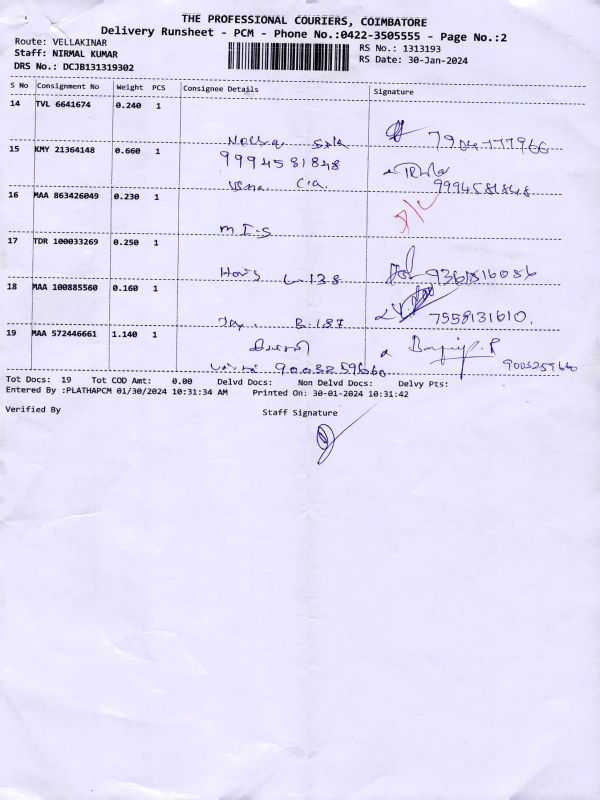 THE PROFESSIONAL COURIERS, COIMBATORE
Delivery Runsheet - PCM - Phone No.:0422-3505555 - Page No.:2
Route: VELLAKINAR
RS No.: 1313193
Staff: NIRMAL KUMAR
RS Date: 30-Jan-2024
DRS No.: DCJB131319302
S No Consignment No Weight PCS Consignee Details Signature
14 TVL 6641674 0.240 1
7904777966
15 KMY 21364148 0.660 1 9994581848
9994581848
16 MAA 863426049 0.230 1
M I S
17 TDR 100033269 0.250 1
138 9361816086
18 MAA 100885560 0.160 1
B.187 7558131610.
19 MAA 572446661 1.140 1
9003259660 9003259660
Tot Docs: 19 Tot COD Amt: 0.00 Delvd Docs: Non Delvd Docs: Delvy Pts:
Entered By :PLATHAPCM 01/30/2024 10:31:34 AM Printed On: 30-01-2024 10:31:42
Verified By Staff Signature